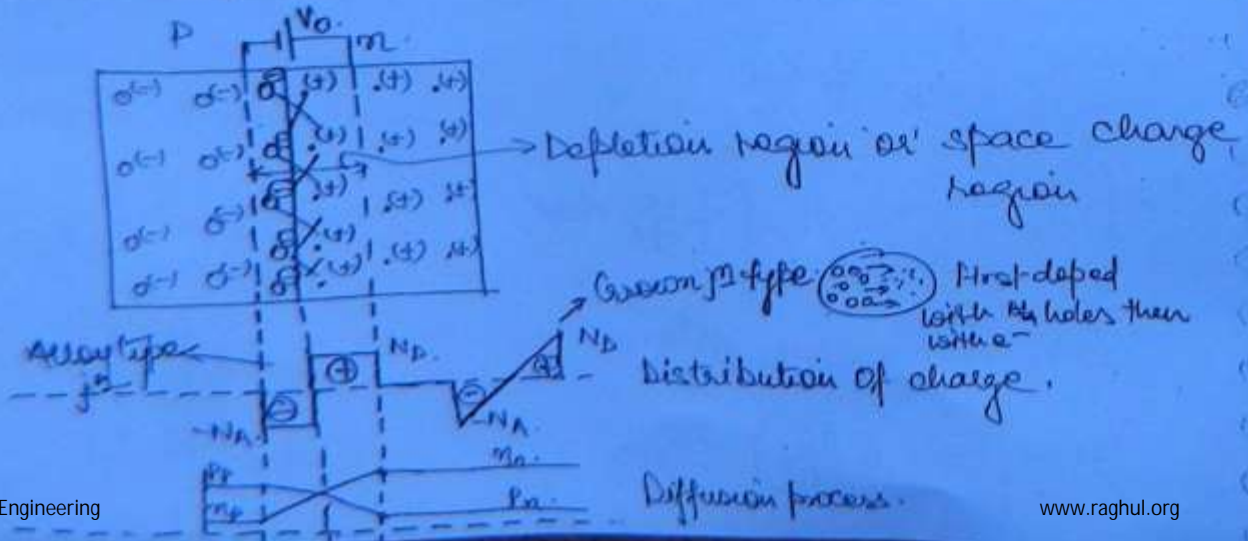 P
V₀.
n.
O(-) O(-) (+) .(+) .(+)
O(-) O(-) (+) .(+) .(+)
O(-) O(-) (+) .(+) .(+)
O(-) O(-) (+) .(+) .(+)
Depletion region or space charge
region
Grown jn type
First doped
with holes then
with e-
Alloy type
jn
ND.
+
-
-NA.
ND
+
-
-NA.
Distribution of charge.
Pp
np
nn.
Pn.
Diffusion process.
Engineering
www.raghul.org